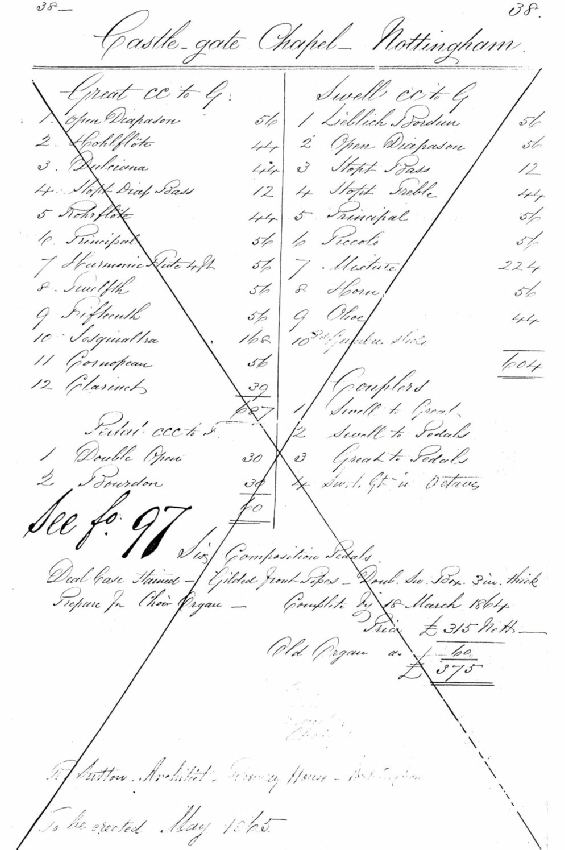 38 —
38.
Castle-gate Chapel — Nottingham.
Great CC to G.
1. Open Diapason 56
2. Hohlflöte 44
3. Dulciana 44
4. Stopt Diap Bass 12
5 Rohrflöte 44
6. Principal 56
7 Harmonic Flute 4 ft 56
8. Twelfth 56
9 Fifteenth 56
10 Sesquialtra 168
11 Cornopean 56
12 Clarinet 39
Pedal CCC to F.
1 Double Open 30
2 Bourdon 30
60
Swell CC to G
1 Lieblich Bordun 56
2 Open Diapason 56
3 Stopt Bass 12
4 Stopt Treble 44
5 Principal 56
6 Piccolo 56
7 Mixture 224
8 Horn 56
9 Oboe 44
10
604
Couplers
1 Swell to Great
2 Swell to Pedals
3 Great to Pedals
4 Sw. to Gt in Octaves
See fo. 97
Six Composition Pedals
Deal Case Stained — Gilded Front Pipes — Doub. Sw. Box 3 in. thick
Prepare for Choir Organ — Complete by 18 March 1864
Price £315 Nett —
Old Organ as 60
£ 375
Sutton — Architect —
To be erected May 1865.